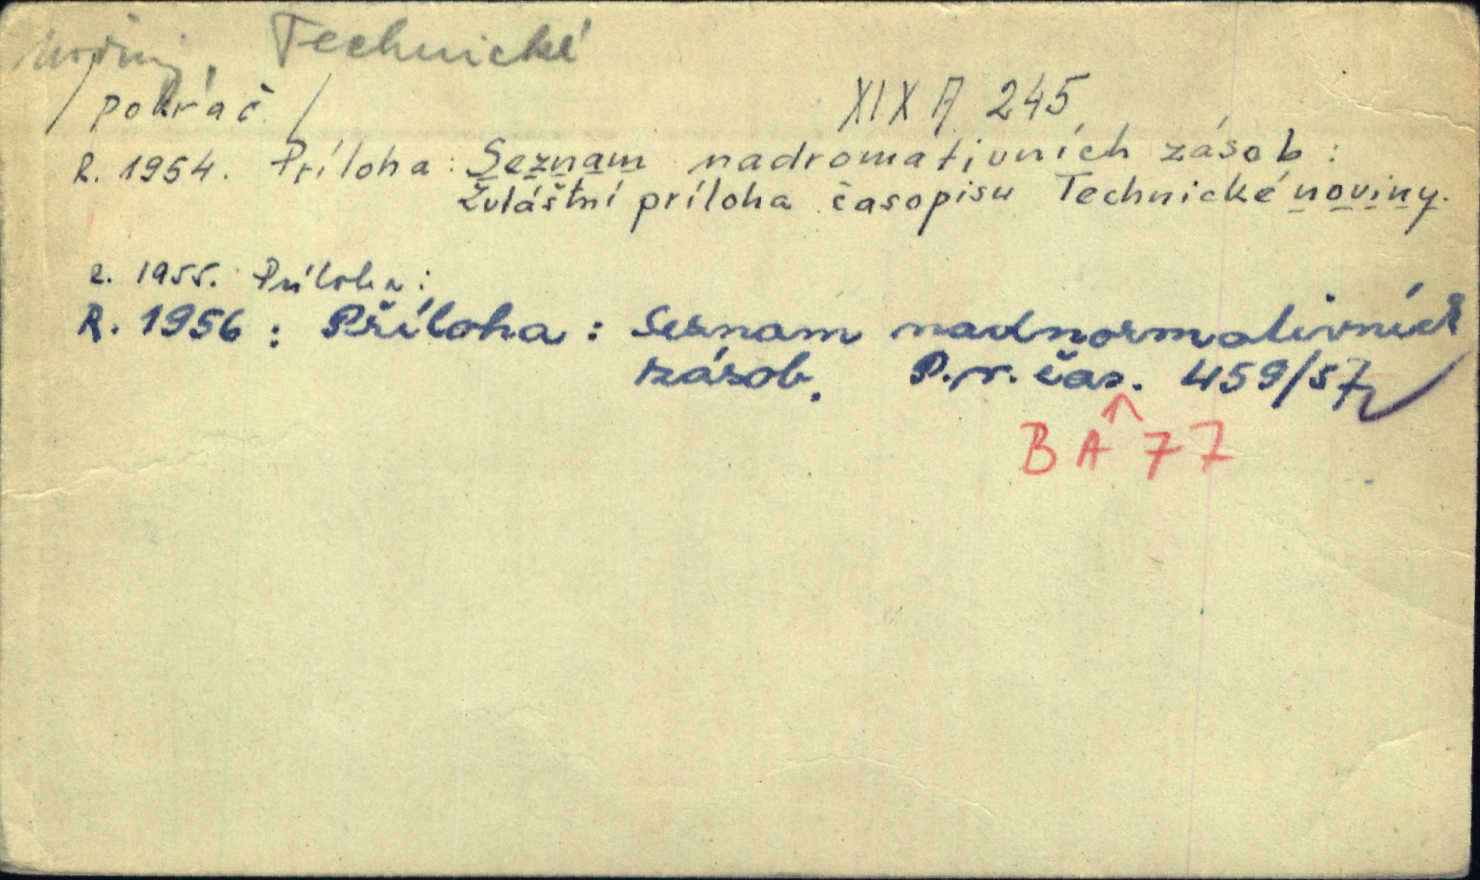 noviny, Technické
/pokrač./
XIX A 245
R. 1954. Príloha: Seznam nadromativních zásob:
Zvláštní príloha časopisu Technické noviny.
R. 1955. Príloha:
R. 1956: Příloha: Seznam nadnormativních
zásob. P.r. čas. 459/57
BA 77